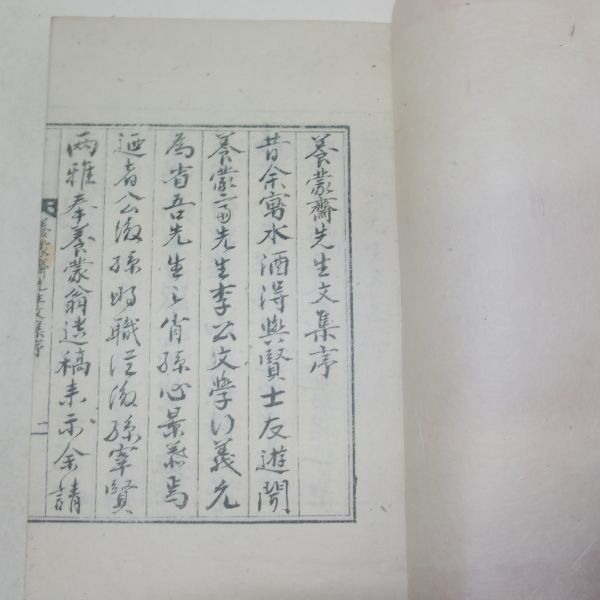 養蒙齋先生文集序
昔余寓水酒得與賢士友遊聞
養蒙齋先生李公文學行義允
為省吾先生之肖孫心景慕焉
迺者公後孫時職從後孫宰賢
兩雅奉養蒙翁遺稿来示余請
養蒙齋先生文集序 一